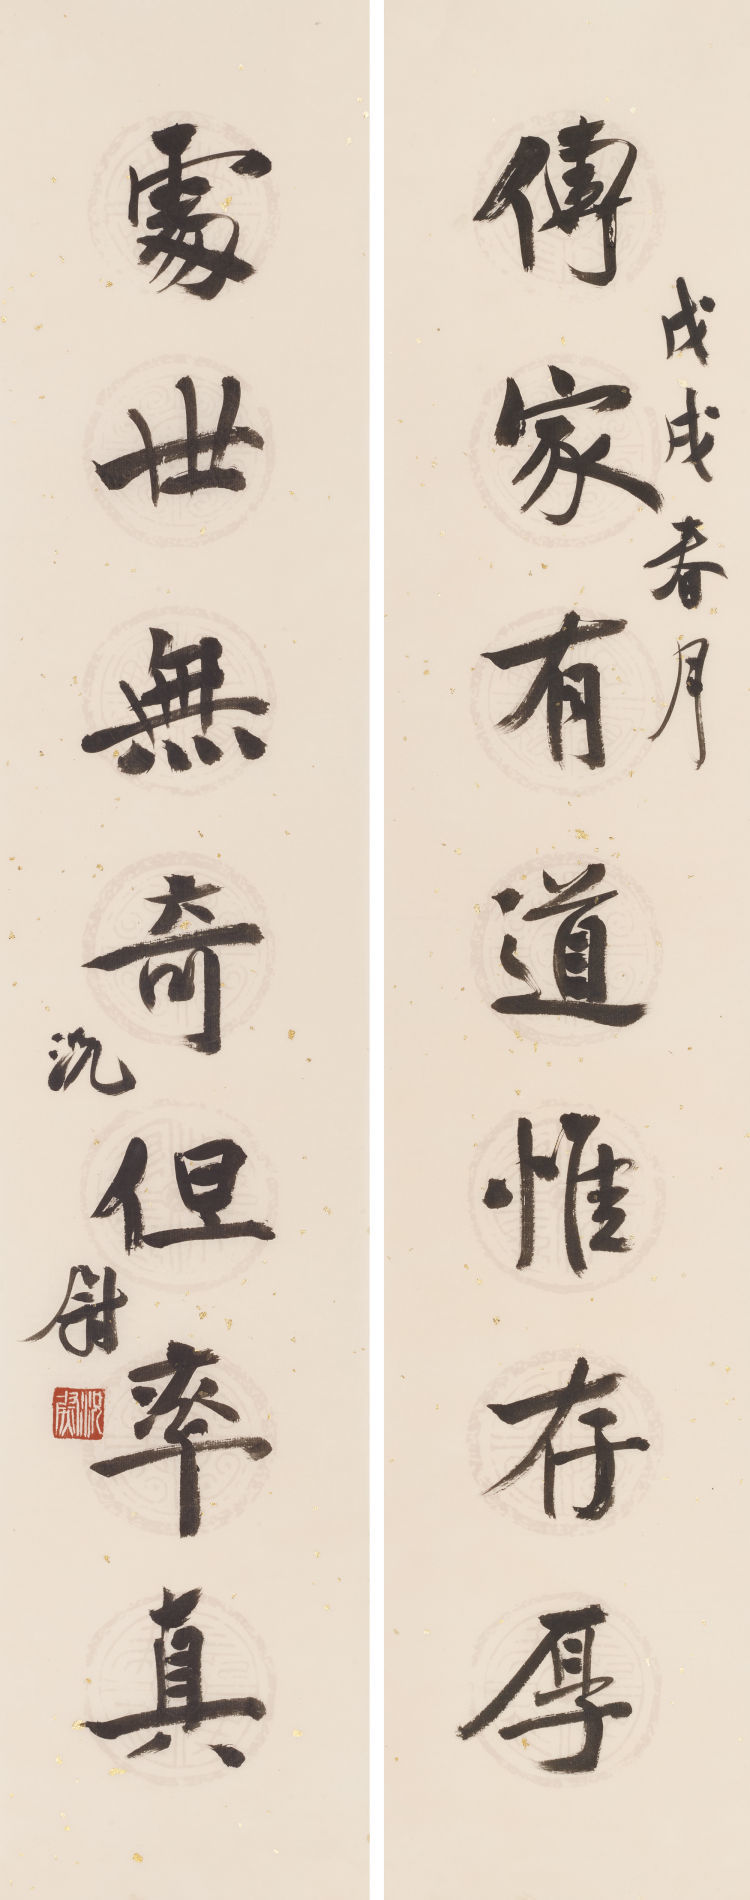 戊戌春月
傳家有道惟存厚
處世無奇但率真
沈尉